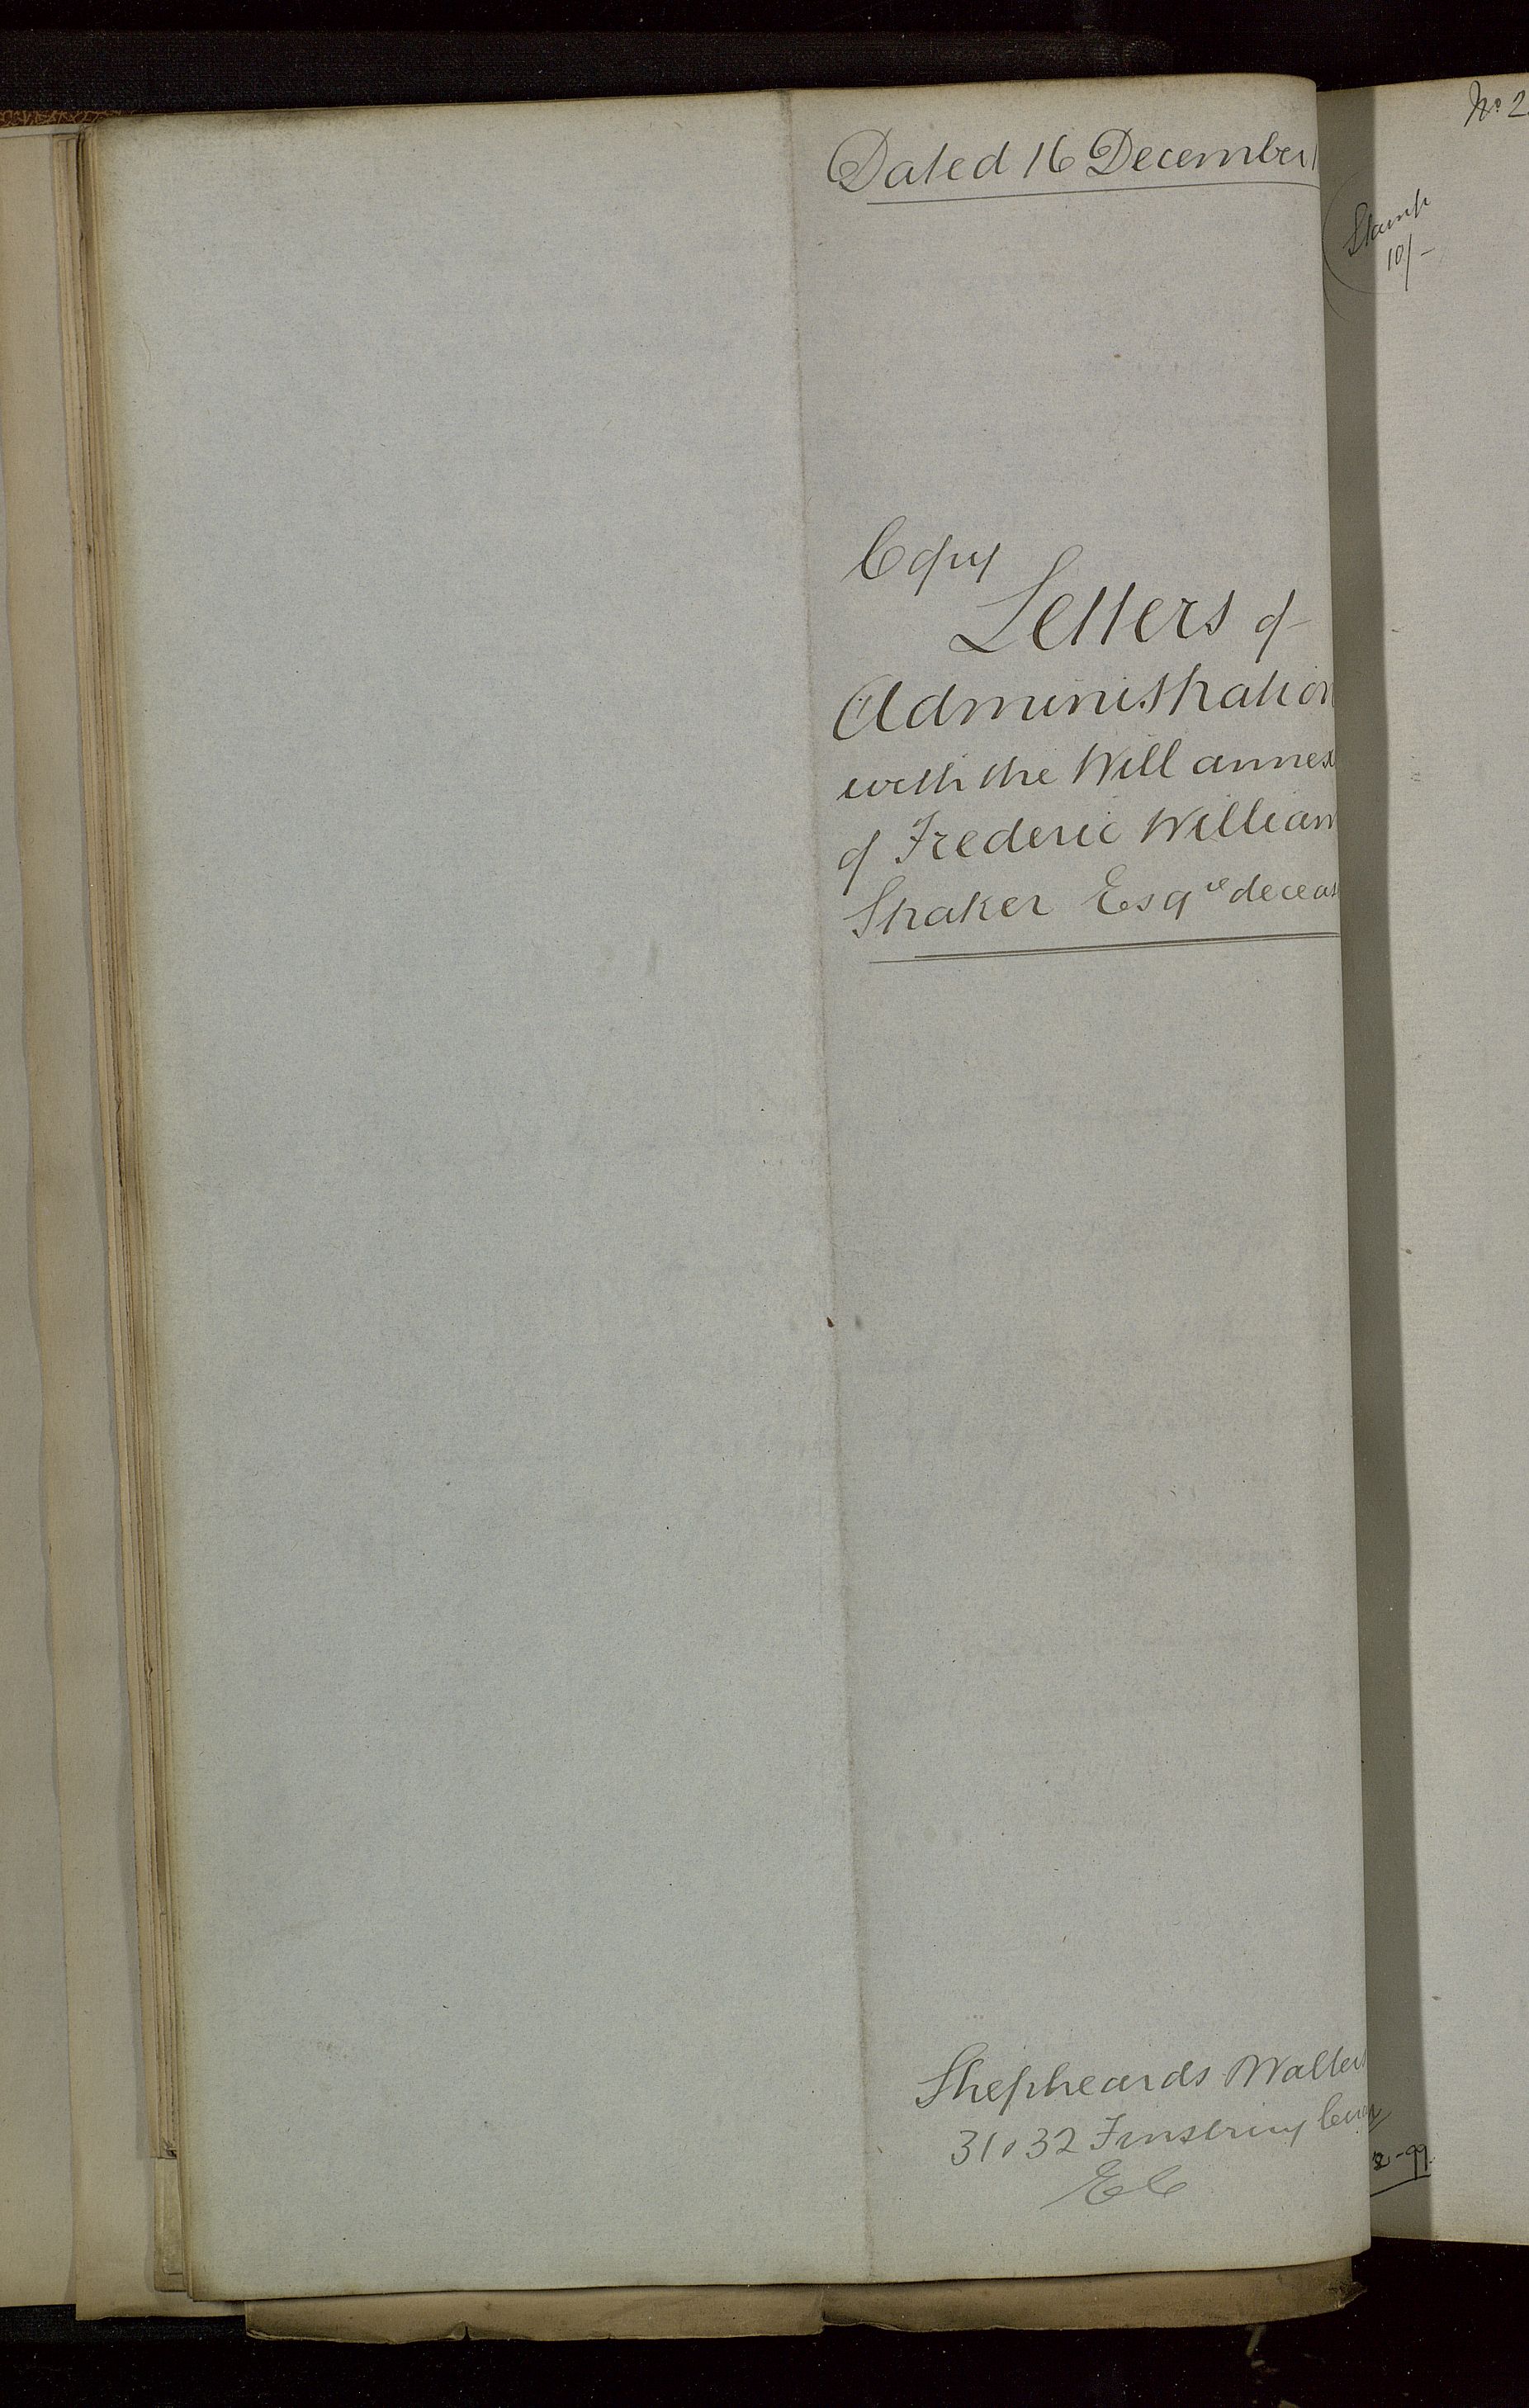 Dated 16 December 1
Copy
Letters of
Administration
with the Will annex
of Frederic William
Straker Esqre deceas
Shepheards Walter
31 & 32 Finsbury Circ
EC
No 2
Stamp
10/-
2-99